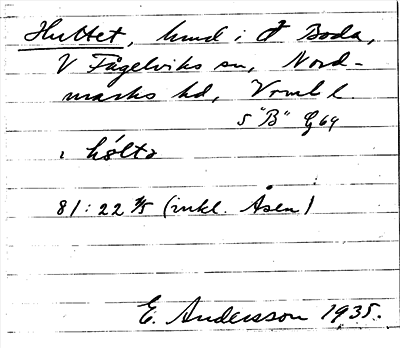 Huttet, hmd i Boda,
V Fågelviks sn, Nord-
marks hd, Vrml l.
5 "B" G 69
i hólto
81:22 ⅜ (inkl. Åsen)
E. Andersson 1935.